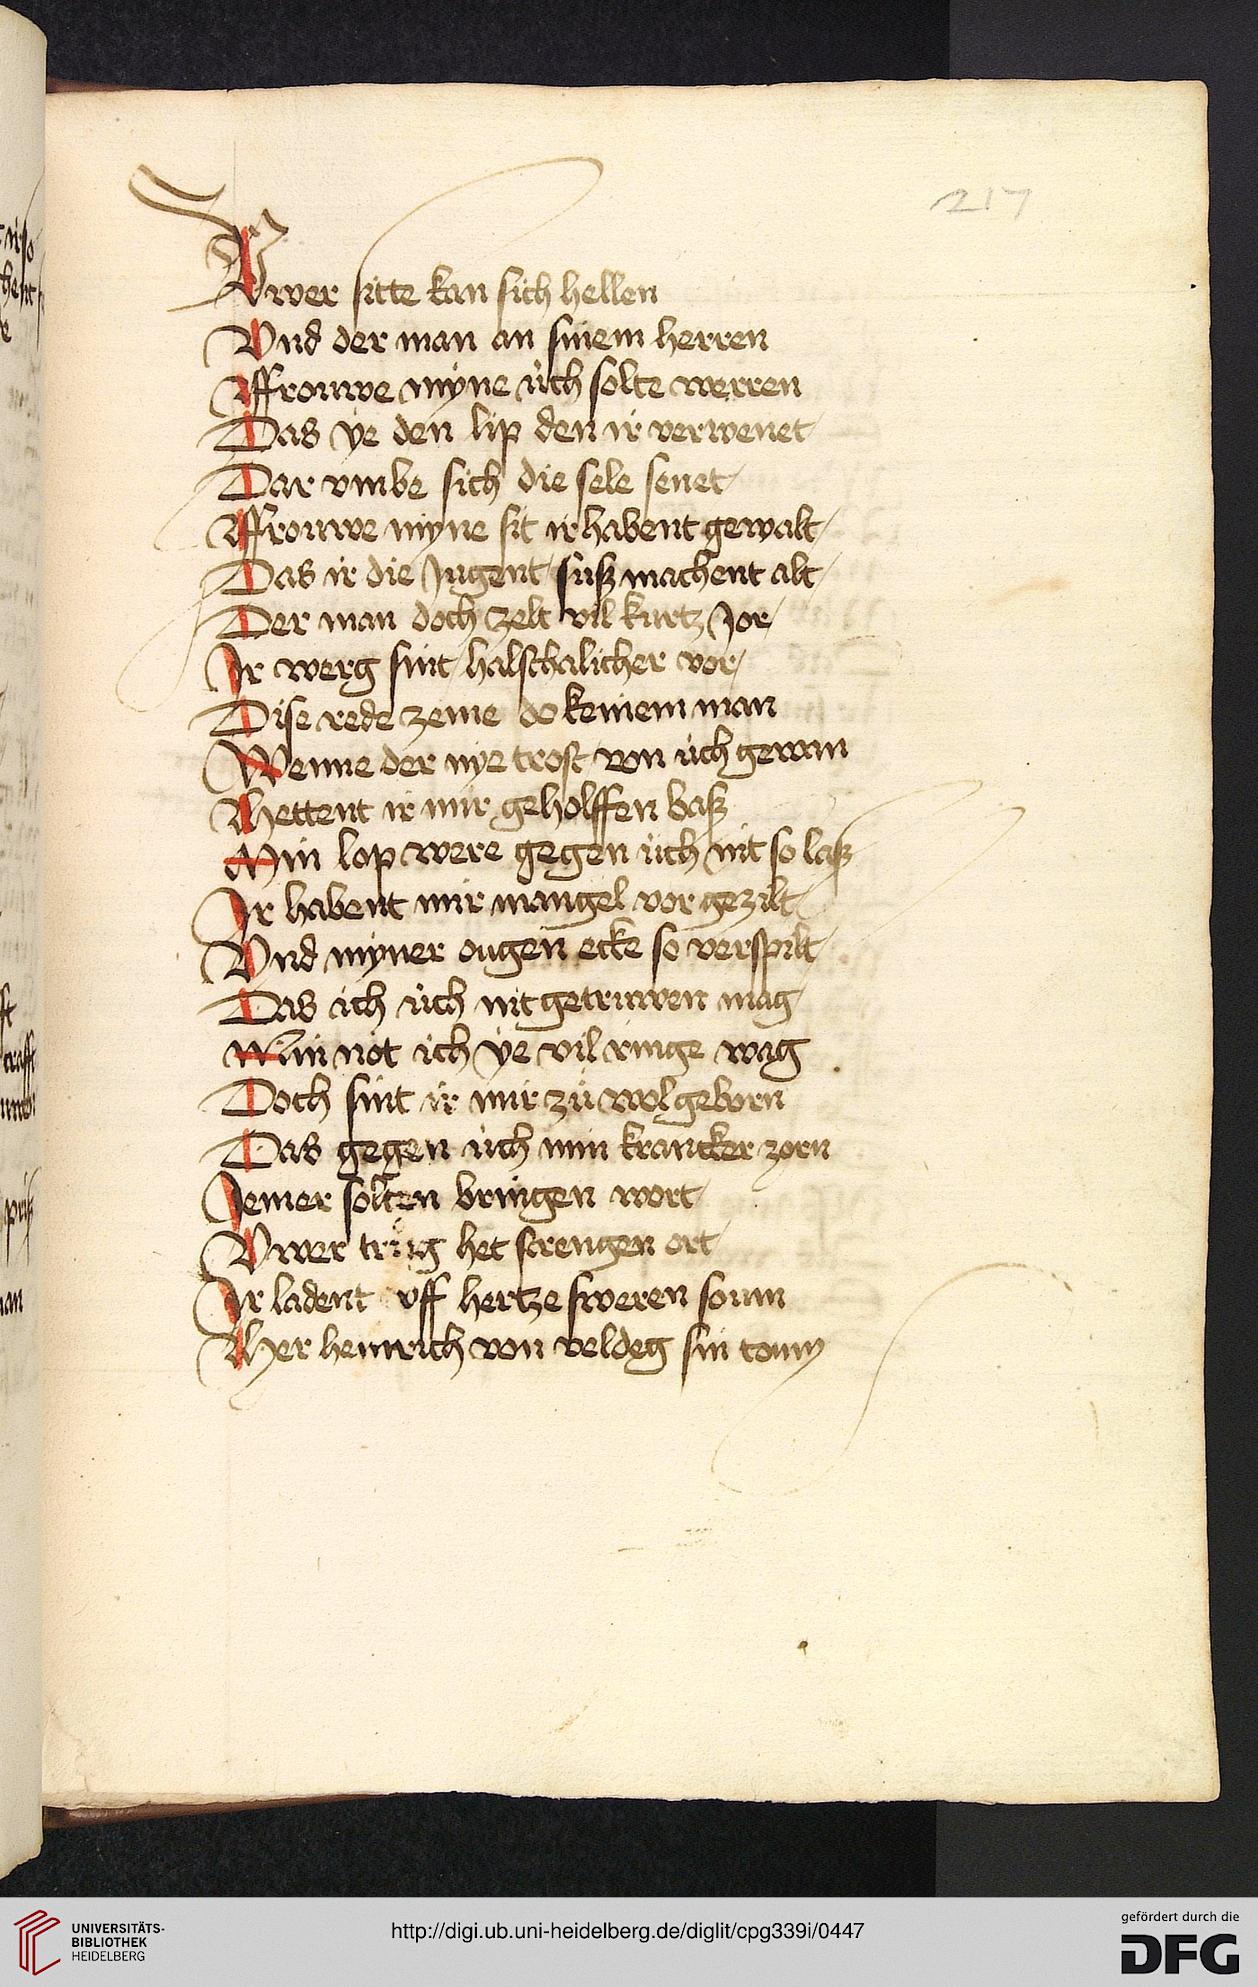 217
Vwer sitte kan sich hellen
Vnd der man an sinem herren
Ffrouwe myne úch solte werren
Das ye den lip den ir verwenet
Dar vmbe sich die sele senet
Ffrouwe myne sit ir habent gewalt
Das ir die Jugent suß machent alt
Der man doch zelt vil kurtz Jor
Ir werg sint halschalicher vor
Dise rede zeme do keinem man
Wenne der nye trost von úch gewan
Hettent ir mir geholffen baß
Min lop were gegen úch nit so laß
Ir habent mir mangel vor gezilt
Vnd myner ougen ecke so verspilt
Das ich úch nit getruwen mag
Min not ich ye vil ringe wag
Doch sint ir mir zů wol geborn
Das gegen úch min krancker zorn
Iemer solten bringen wort
Vwer trug het strengen ort
Ir ladent vff hertze sweren soum
Her heinrich von veldeg sin toum
UNIVERSITÄTS-
BIBLIOTHEK
HEIDELBERG
http://digi.ub.uni-heidelberg.de/diglit/cpg339i/0447
gefördert durch die
DFG